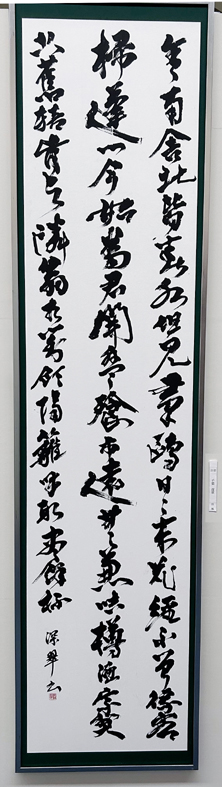 舍南舍北皆春水但見羣鷗日々来花徑不曾緣客
掃蓬門今始為君開盤飧市遠無兼味樽酒家貧
只舊醅肯与隣翁相對飲隔籬呼取盡餘杯 深翠书